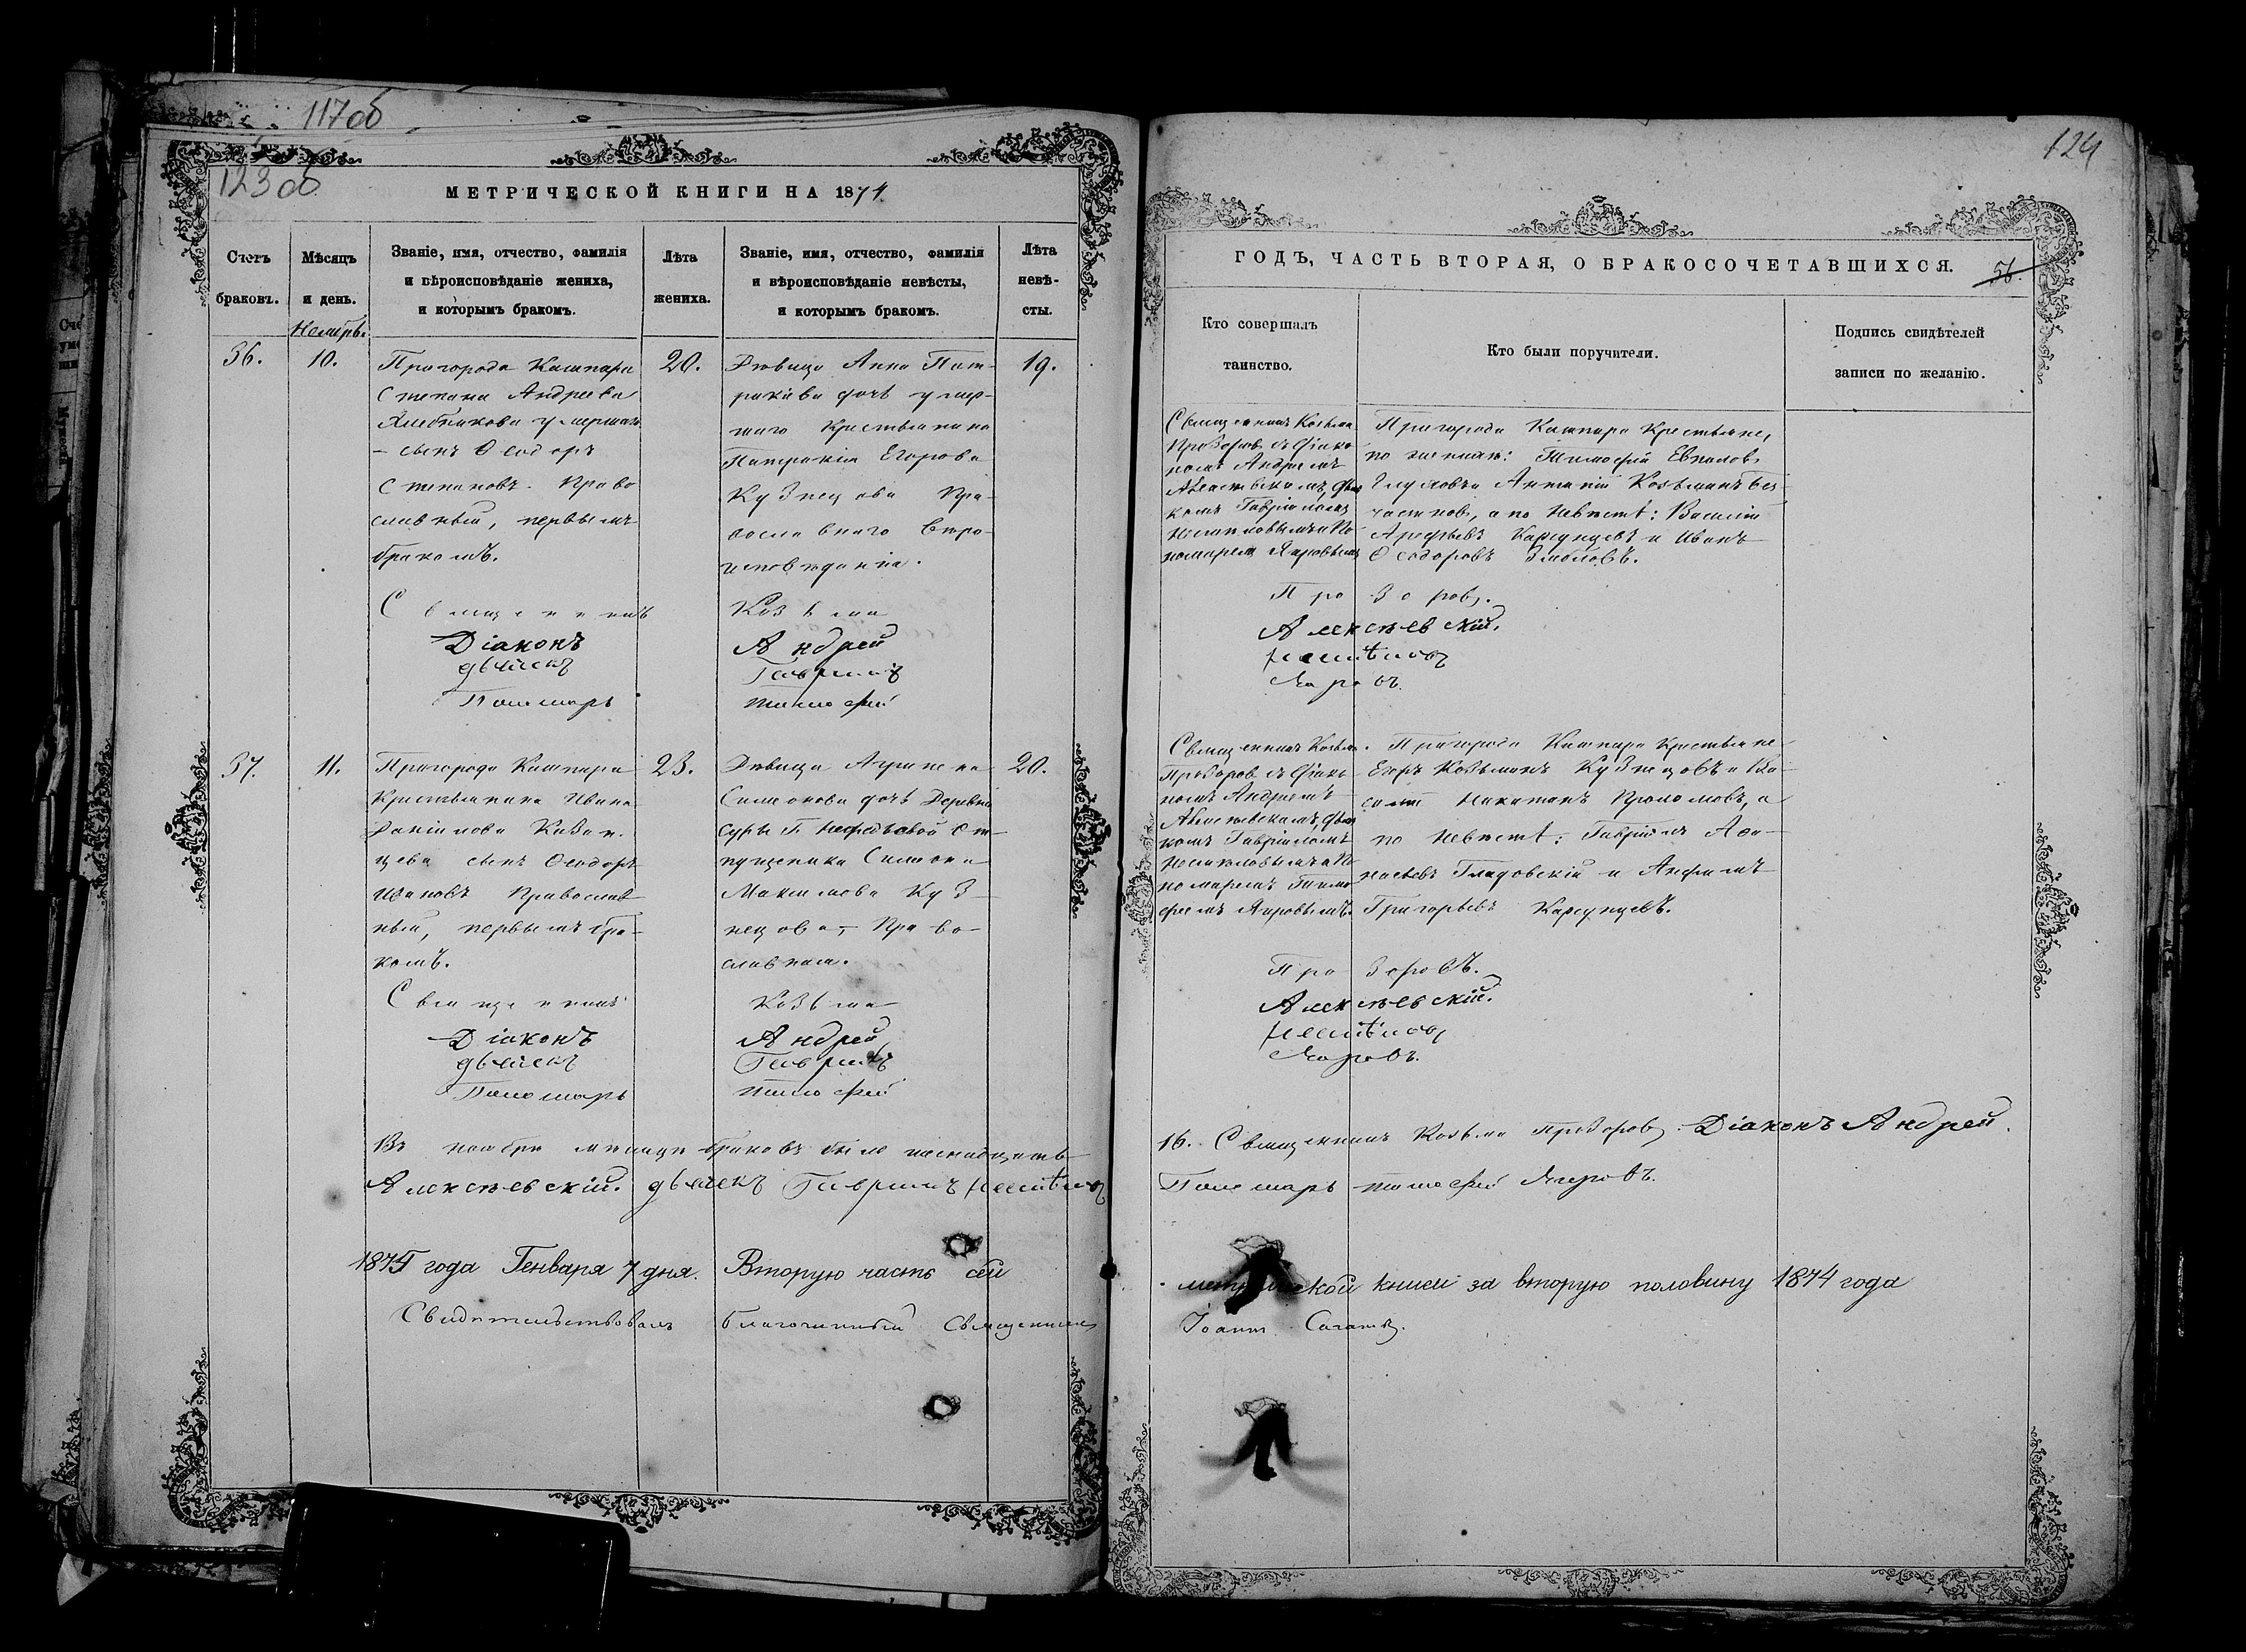 117об
123об
МЕТРИЧЕСКОЙ КНИГИ НА 1874
Счетъ браковъ.
Мѣсяцъ и день.
Званіе, имя, отчество, фамилія
и вѣроисповѣданіе жениха,
и которымъ бракомъ.
Лѣта жениха.
Званіе, имя, отчество, фамилія
и вѣроисповѣданіе невѣсты,
и которымъ бракомъ.
Лѣта
невѣ-
сты.
Ноябрь.
36.
10.
Пригорода Кашпира
Степана Андреева
умершаго
сынъ Ѳеодоръ
Степановъ. Право
славный, первымъ
бракомъ.
20.
Дѣвица Анна Пат-
рикіева дочь умер-
шаго Крестьянина
Патрикія Егорова
Кузнецова Пра-
вославнаго Вѣро-
исповѣданія.
19.
Священникъ Козьма
Діаконъ Андрей
дьячекъ Гавріилъ
Пономарь Тимофей
37.
11.
Пригорода Кашпира
Крестьянина Ивана
Даніилова Казан.
цева сынъ Ѳеодоръ
Ивановъ Православ
ный, первымъ бра-
комъ.
23.
Дѣвица
Симонова дочь Деревни
От-
пущеника Симона
Максимова Куз-
нецова, Право-
славная.
20.
Священникъ Козьма
Діаконъ Андрей
дьячекъ Гавріилъ
Пономарь Тимофей
Въ ноябрѣ мѣсяцѣ браковъ было шестнадцать
Алексѣевскій. дьячекъ Гавріилъ
1875 года Генваря 7 дня. Вторую часть сей
Свидѣтельствовалъ благочинный Священникъ
124
ГОДЪ, ЧАСТЬ ВТОРАЯ, О БРАКОСОЧЕТАВШИХСЯ.
56.
Кто совершалъ
таинство.
Кто были поручители.
Подпись свидѣтелей
записи по желанію.
Священникъ Козьма
Прозоровъ съ Діако
номъ Андреемъ
Алексѣевскимъ, дьяч
комъ Гавріиломъ
и По-
номаремъ
Пригорода Кашпира Крестьяне,
по женихѣ: Тимофей
Козьминъ Без-
частновъ, а по Невѣстѣ: Василій
Арефьевъ Карсунцевъ и Иванъ
Ѳеодоровъ
Прозоровъ.
Алексѣевскій.
Священникъ Козьма
Прозоровъ съ Діако
номъ Андреемъ
Алексѣевскимъ, дьяч
комъ Гавріиломъ
и По
номаремъ Тимо
феемъ
Пригорода Кашпира Крестьяне
Егоръ Козьминъ Кузнецовъ и Ва-
силій Никитинъ а
по Невѣстѣ: Гавріилъ Аѳа-
насьевъ и Анфимъ
Григорьевъ Карсунцевъ.
Прозоровъ.
Алексѣевскій.
16. Священникъ Козьма Прозоровъ. Діаконъ Андрей.
Пономарь Тимофей
метрической книги за вторую половину 1874 года
Іоаннъ